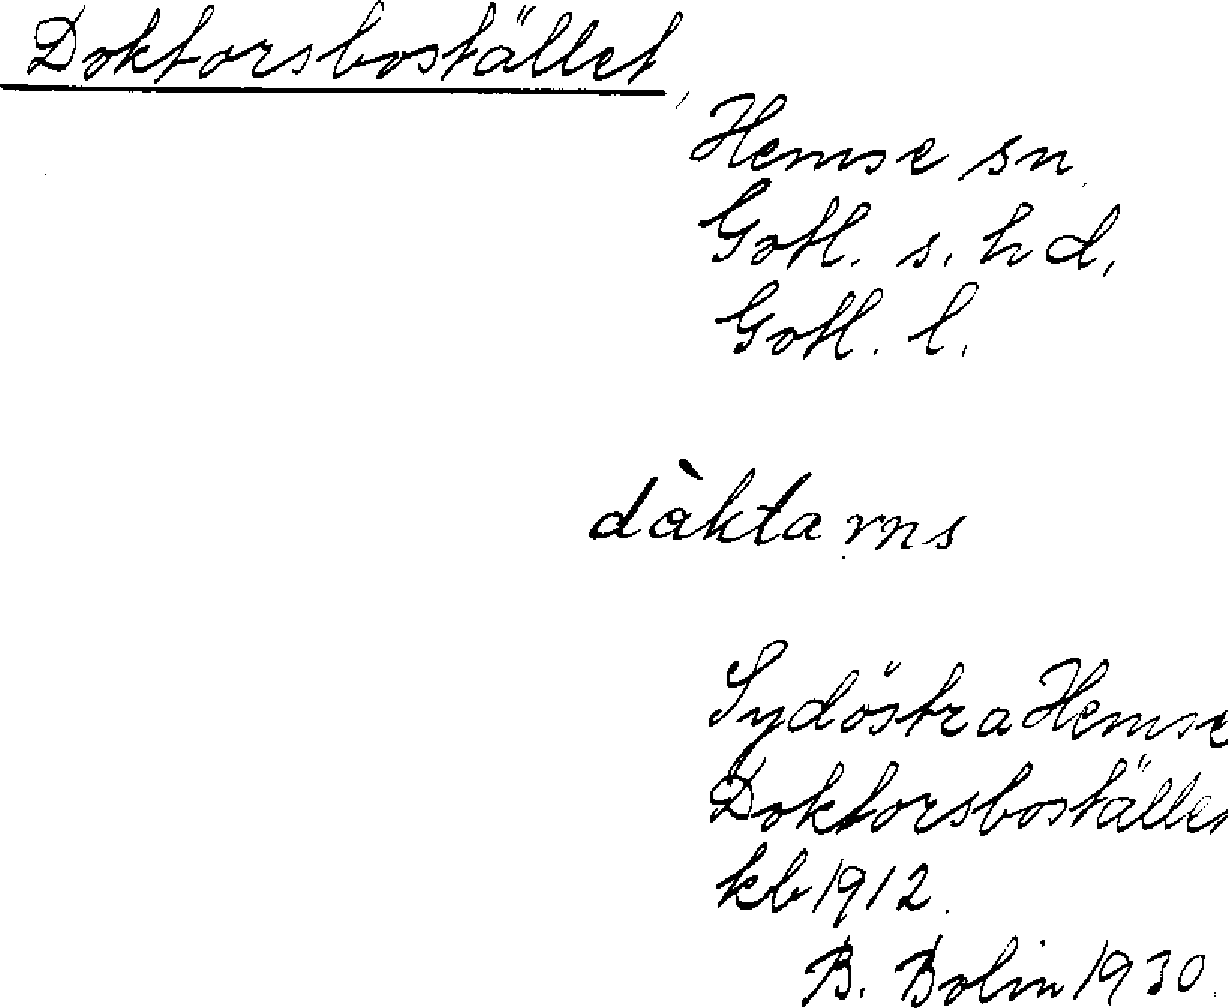 Doktorsbostället,
Hemse sn.
Gotl. s. hd,
Gotl. l.
dàktarns
Sydöstra Hemse
Doktorsbostället
kb 1912.
B. Bolin 1930.